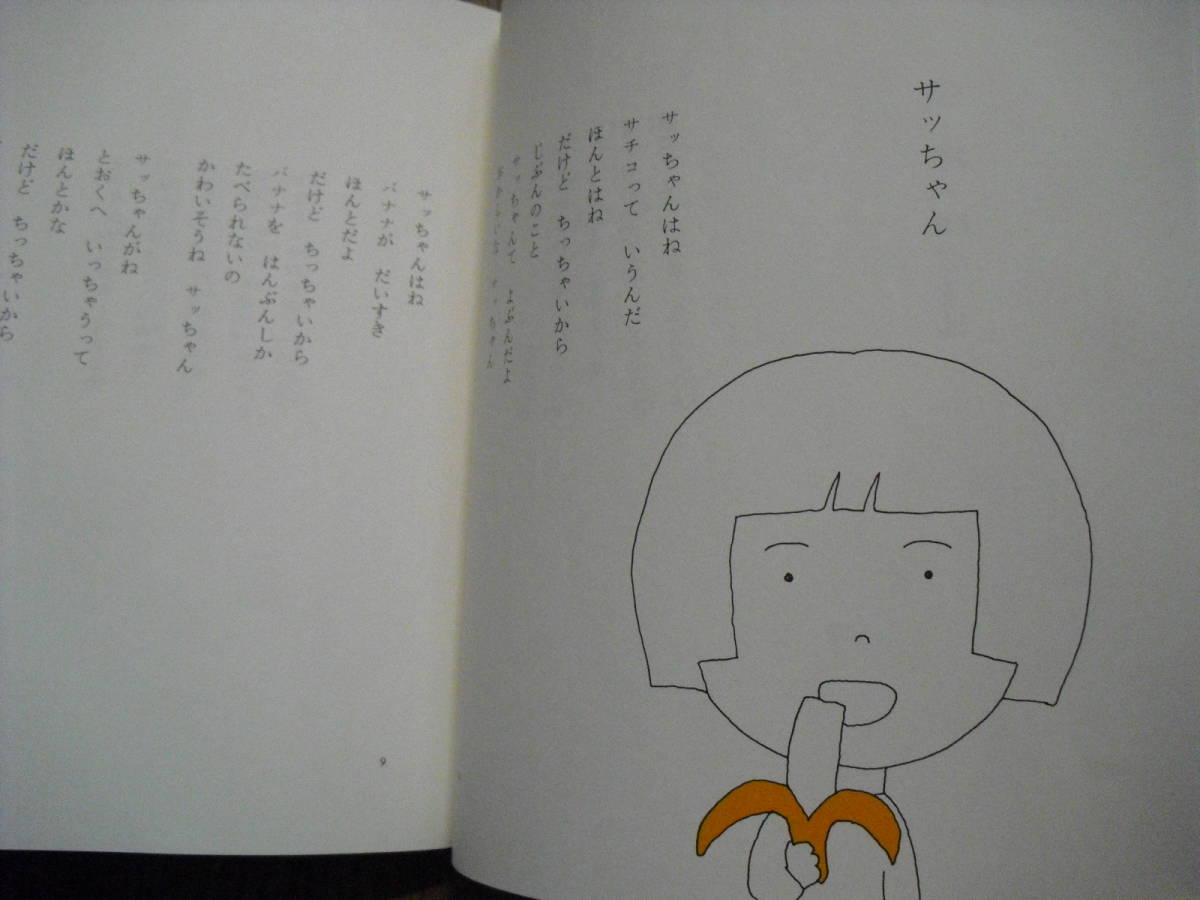 サッちゃん
サッちゃんはね
サチコって いうんだ
ほんとはね
だけど ちっちゃいから
じぶんのこと
サッちゃんて よぶんだよ
おかしいな サッちゃん
サッちゃんはね
バナナが だいすき
ほんとだよ
だけど ちっちゃいから
バナナを はんぶんしか
たべられないの
かわいそうね サッちゃん
サッちゃんがね
とおくへ いっちゃうって
ほんとかな
だけど ちっちゃいから
9